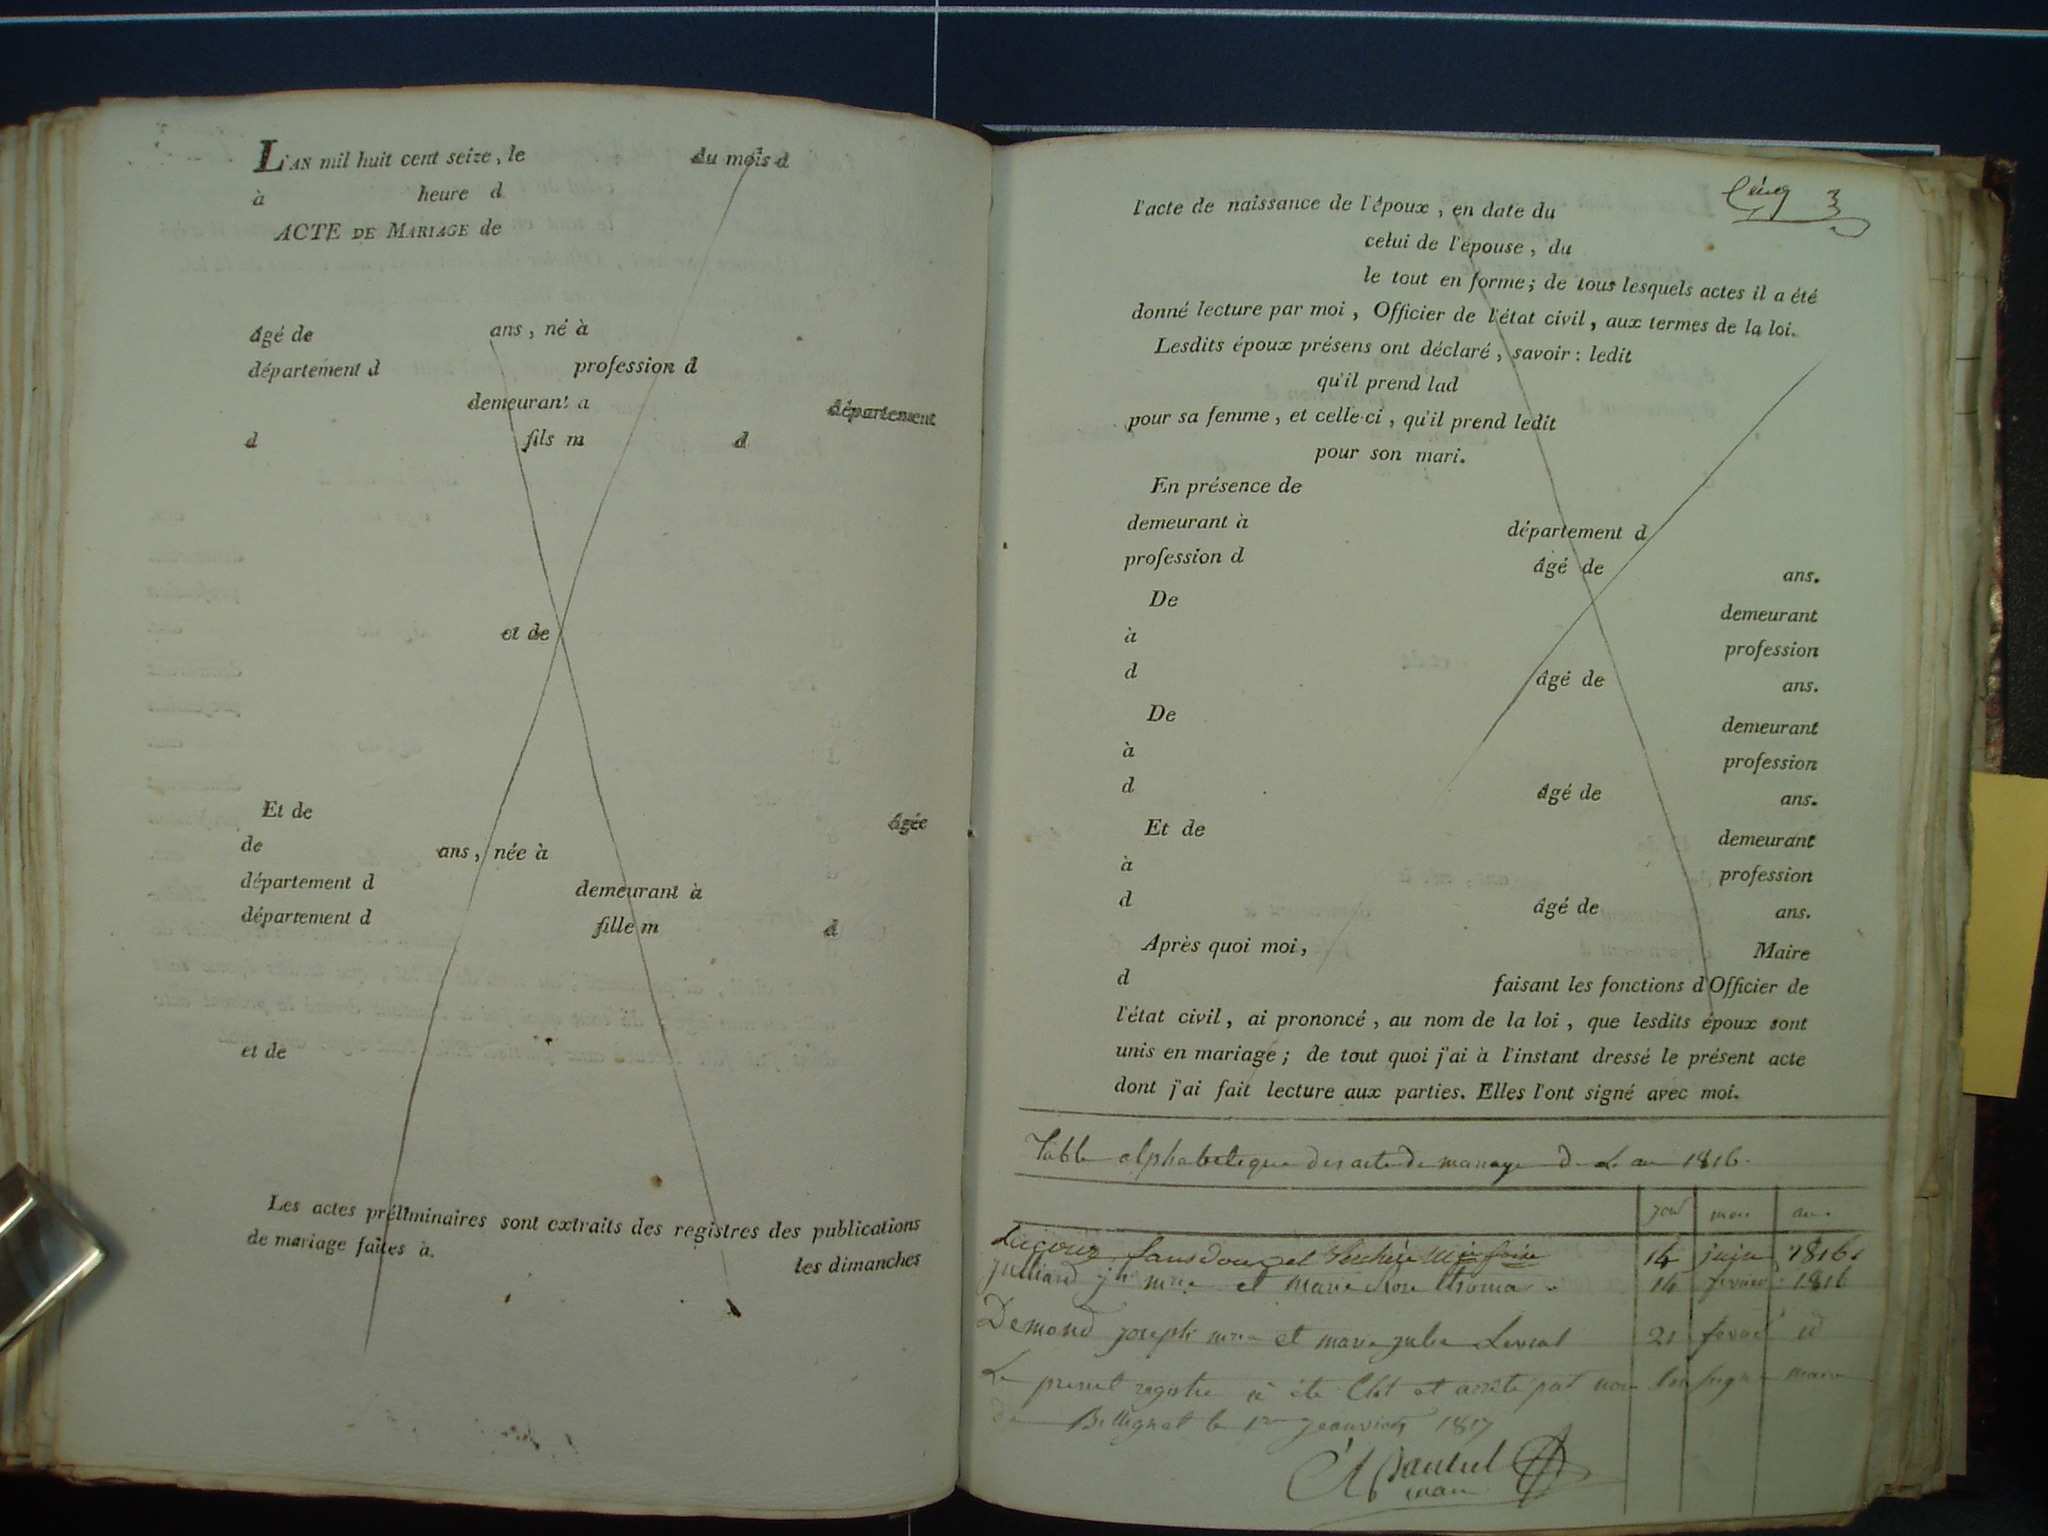 L'AN mil huit cent seize, le du mois d
à heure d
ACTE DE MARIAGE de
âgé de ans, né à
département d profession d
demeurant a département
d fils m d
et de
Et de âgée
de ans, née à
département d demeurant à
département d fille m d
et de
Les actes préliminaires sont extraits des registres des publications
de mariage faites à. les dimanches
l'acte de naissance de l'époux, en date du
celui de l'épouse, du
le tout en forme; de tous lesquels actes il a été
donné lecture par moi, Officier de l'état civil, aux termes de la loi.
Lesdits époux présens ont déclaré, savoir: ledit
qu'il prend lad
pour sa femme, et celle-ci, qu'il prend ledit
pour son mari.
En présence de
demeurant à département d
profession d âgé de ans.
De demeurant
à profession
d âgé de ans.
De demeurant
à profession
d âgé de ans.
Et de demeurant
à profession
d âgé de ans.
Après quoi moi, Maire
d faisant les fonctions d'Officier de
l'état civil, ai prononcé, au nom de la loi, que lesdits époux sont
unis en mariage; de tout quoi j'ai à l'instant dressé le présent acte
dont j'ai fait lecture aux parties. Elles l'ont signé avec moi.
Table alphabetique des acte de mariage de L an 1816.
jour mois an
et 14 juin 1816
et marie Rose thomas 14 1816
Demond joseph et marie julie 21 id
Le present registre à été Clot et arrêté par nous maire
de le 1er 1817
maire